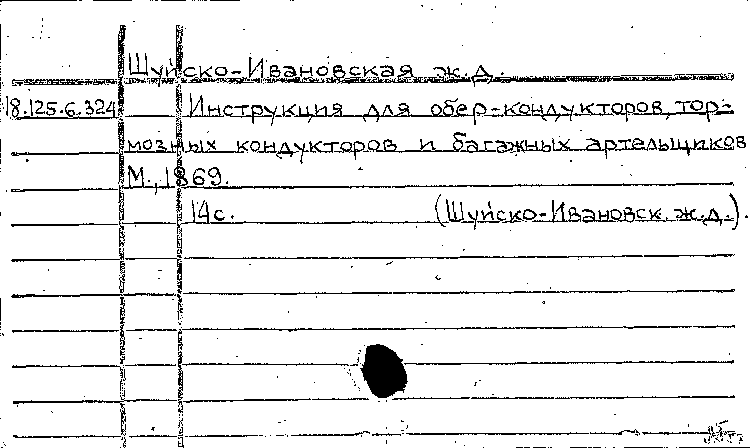 Шуйско-Ивановская ж.д.
18.125.6.324 Инструкция для обер-кондукторов, тор-
мозных кондукторов и багажных артельщиков
М., 1869.
14с. (Шуйско-Ивановск. ж.д.).